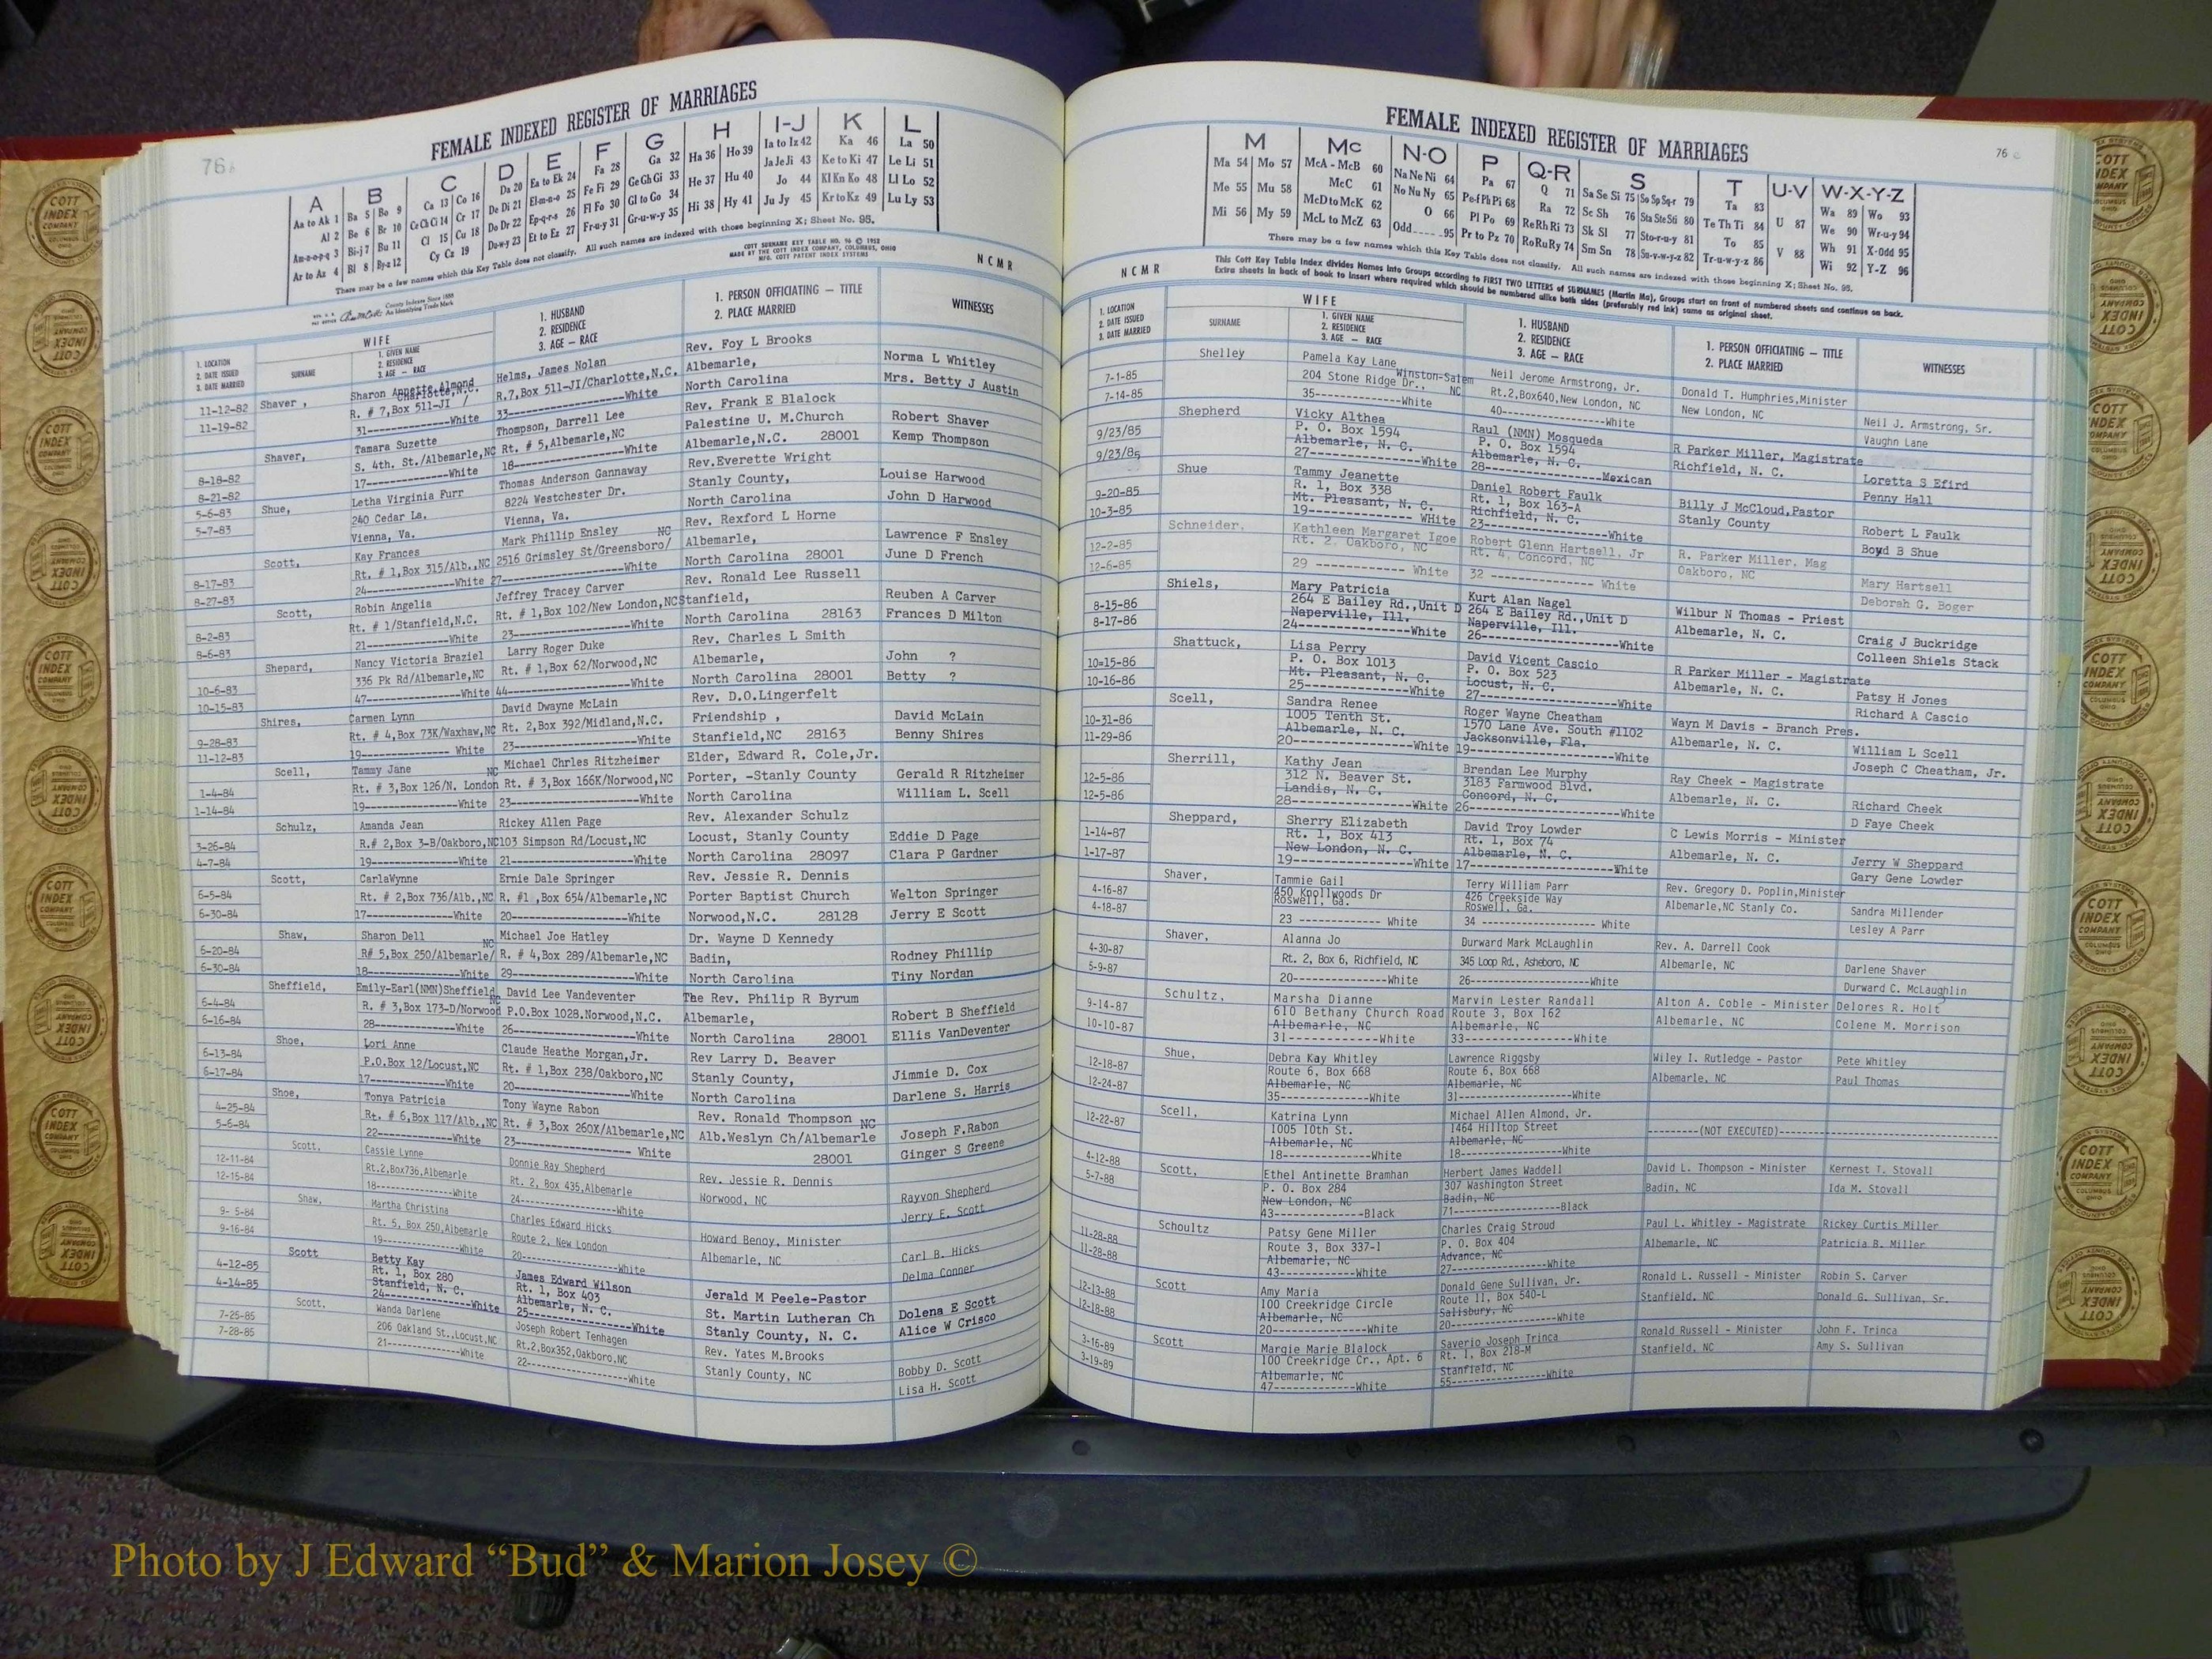 76
FEMALE INDEXED REGISTER OF MARRIAGES
A B C D E F G H I-J K L
Aa to Ak 1 Ba 5 Bo 9 Ca 13 Co 16 Da 20 Ea to Ek 24 Fa 28 Ga 32 Ha 36 Ho 39 Ia to Iz 42 Ka 46 La 50
Al 2 Be 6 Br 10 Ce Ch Ci 14 Cr 17 De Di 21 El-m-n-o 25 Fe Fi 29 Ge Gh Gi 33 He 37 Hu 40 Ja Je Ji 43 Ke to Ki 47 Le Li 51
Am-n-o-p-q 3 Bi-j 7 Bu 11 Cl 15 Cu 18 Do Dr 22 Ep-q-r-s 26 Fl Fo 30 Gl to Go 34 Hi 38 Hy 41 Jo 44 Kl Kn Ko 48 Ll Lo 52
Ar to Az 4 Bl 8 By-z 12 Cy Cz 19 Du-w-y 23 Et to Ez 27 Fr-u-y 31 Gr-u-w-y 35 Ju Jy 45 Kr to Kz 49 Lu Ly 53
There may be a few names which this Key Table does not classify. All such names are indexed with those beginning X; Sheet No. 95.
COTT SURNAME KEY TABLE NO. 96 © 1952
MADE BY THE COTT INDEX COMPANY, COLUMBUS, OHIO
MFG. COTT PATENT INDEX SYSTEMS
County Indexes Since 1888
An Identifying Trade Mark
N C M R
1. LOCATION
2. DATE ISSUED
3. DATE MARRIED
WIFE
SURNAME
1. GIVEN NAME
2. RESIDENCE
3. AGE — RACE
1. HUSBAND
2. RESIDENCE
3. AGE — RACE
1. PERSON OFFICIATING — TITLE
2. PLACE MARRIED
WITNESSES
Shaver, Sharon Annette Almond Helms, James Nolan Rev. Foy L Brooks
11-12-82 R. # 7,Box 511-JI / Charlotte,N.C. R,7,Box 511-JI/Charlotte,N.C. Albemarle, Norma L Whitley
11-19-82 31--------------White 33--------------------White North Carolina Mrs. Betty J Austin
Shaver, Tamara Suzette Thompson, Darrell Lee Rev. Frank E Blalock
8-18-82 S. 4th. St./Albemarle,NC Rt. # 5,Albemarle,NC Palestine U. M.Church Robert Shaver
8-21-82 17--------------White 18-------------------White Albemarle,N.C. 28001 Kemp Thompson
Shue, Letha Virginia Furr Thomas Anderson Gannaway Rev.Everette Wright
5-6-83 240 Cedar La. 8224 Westchester Dr. Stanly County, Louise Harwood
5-7-83 Vienna, Va. Vienna, Va. North Carolina John D Harwood
Scott, Kay Frances Mark Phillip Ensley NC Rev. Rexford L Horne
8-17-83 Rt. # 1,Box 315/Alb.,NC 2516 Grimsley St/Greensboro/ Albemarle, Lawrence F Ensley
8-27-83 24--------------White 27--------------------White North Carolina 28001 June D French
Scott, Robin Angelia Jeffrey Tracey Carver Rev. Ronald Lee Russell
8-2-83 Rt. # 1/Stanfield,N.C. Rt. # 1,Box 102/New London,NC Stanfield, Reuben A Carver
8-6-83 21--------------White 23--------------------White North Carolina 28163 Frances D Milton
Shepard, Nancy Victoria Braziel Larry Roger Duke Rev. Charles L Smith
10-6-83 336 Pk Rd/Albemarle,NC Rt. # 1,Box 62/Norwood,NC Albemarle, John ?
10-15-83 47--------------White 44--------------------White North Carolina 28001 Betty ?
Shires, Carmen Lynn David Dwayne McLain Rev. D.O.Lingerfelt
9-28-83 Rt. # 4,Box 73K/Waxhaw,NC Rt. 2,Box 392/Midland,N.C. Friendship , David McLain
11-12-83 19-------------- White 23--------------------White Stanfield,NC 28163 Benny Shires
Scell, Tammy Jane NC Michael Chrles Ritzheimer Elder, Edward R. Cole,Jr.
1-4-84 Rt. # 3,Box 126/N. London Rt. # 3,Box 166K/Norwood,NC Porter, -Stanly County Gerald R Ritzheimer
1-14-84 19--------------White 23--------------------White North Carolina William L. Scell
Schulz, Amanda Jean Rickey Allen Page Rev. Alexander Schulz
3-26-84 R.# 2,Box 3-B/Oakboro,NC 103 Simpson Rd/Locust,NC Locust, Stanly County Eddie D Page
4-7-84 19--------------White 21--------------------White North Carolina 28097 Clara P Gardner
Scott, CarlaWynne Ernie Dale Springer Rev. Jessie R. Dennis
6-5-84 Rt. # 2,Box 736/Alb.,NC R. #1 ,Box 654/Albemarle,NC Porter Baptist Church Welton Springer
6-30-84 17--------------White 20--------------------White Norwood,N.C. 28128 Jerry E Scott
Shaw, Sharon Dell NC Michael Joe Hatley Dr. Wayne D Kennedy
6-20-84 R# 5,Box 250/Albemarle/ R. # 4,Box 289/Albemarle,NC Badin, Rodney Phillip
6-30-84 18--------------White 29--------------------White North Carolina Tiny Nordan
Sheffield, Emily-Earl(NMN)Sheffield NC David Lee Vandeventer The Rev. Philip R Byrum
6-4-84 R. # 3,Box 173-D/Norwood P.O.Box 1028.Norwood,N.C. Albemarle, Robert B Sheffield
6-16-84 28--------------White 26--------------------White North Carolina 28001 Ellis VanDeventer
Shoe, Lori Anne Claude Heathe Morgan,Jr. Rev Larry D. Beaver
6-13-84 P.O.Box 12/Locust,NC Rt. # 1,Box 238/Oakboro,NC Stanly County, Jimmie D. Cox
6-17-84 17--------------White 20--------------------White North Carolina Darlene S. Harris
Shoe, Tonya Patricia Tony Wayne Rabon Rev. Ronald Thompson NC
4-25-84 Rt. # 6,Box 117/Alb.,NC Rt. # 3,Box 260X/Albemarle,NC Alb.Weslyn Ch/Albemarle Joseph F.Rabon
5-6-84 22--------------White 23-------------------- White 28001 Ginger S Greene
Scott, Cassie Lynne Donnie Ray Shepherd Rev. Jessie R. Dennis
12-11-84 Rt.2,Box736,Albemarle Rt. 2, Box 435,Albemarle Norwood, NC Rayvon Shepherd
12-15-84 18--------------White 24--------------------White Jerry E. Scott
Shaw, Martha Christina Charles Edward Hicks Howard Benoy, Minister
9- 5-84 Rt. 5, Box 250,Albemarle Route 2, New London Albemarle, NC Carl B. Hicks
9-16-84 19--------------White 20--------------------White Delma Conner
Scott Betty Kay James Edward Wilson Jerald M Peele-Pastor
4-12-85 Rt. 1, Box 280 Rt. 1, Box 403 St. Martin Lutheran Ch Dolena E Scott
4-14-85 Stanfield, N. C. Albemarle, N. C. Stanly County, N. C. Alice W Crisco
24--------------White 25--------------------White
Scott, Wanda Darlene Joseph Robert Tenhagen Rev. Yates M.Brooks
7-25-85 206 Oakland St.,Locust,NC Rt.2,Box352,Oakboro,NC Stanly County, NC Bobby D. Scott
7-28-85 21--------------White 22--------------------White Lisa H. Scott
FEMALE INDEXED REGISTER OF MARRIAGES
76
M Mc N-O P Q-R S T U-V W-X-Y-Z
Ma 54 Mo 57 McA - McB 60 Na Ne Ni 64 Pa 67 Q 71 Sa Se Si 75 So Sp Sq-r 79 Ta 83 U 87 Wa 89 Wo 93
Me 55 Mu 58 McC 61 No Nu Ny 65 Pe-f Ph Pi 68 Ra 72 Sc Sh 76 Sta Ste Sti 80 Te Th Ti 84 We 90 Wr-u-y 94
Mi 56 My 59 McD to McK 62 O 66 Pl Po 69 Re Rh Ri 73 Sk Sl 77 Sto-r-u-y 81 To 85 V 88 Wh 91 X-Odd 95
McL to McZ 63 Odd 95 Pr to Pz 70 Ro Ru Ry 74 Sm Sn 78 Su-v-w-y-z 82 Tr-u-w-y-z 86 Wi 92 Y-Z 96
There may be a few names which this Key Table does not classify. All such names are indexed with those beginning X; Sheet No. 95.
This Cott Key Table Index divides Names into Groups according to FIRST TWO LETTERS of SURNAMES (Martin Ma), Groups start on front of numbered sheets and continue on back.
Extra sheets in back of book to insert where required which should be numbered alike both sides (preferably red ink) same as original sheet.
N C M R
1. LOCATION
2. DATE ISSUED
3. DATE MARRIED
WIFE
SURNAME
1. GIVEN NAME
2. RESIDENCE
3. AGE — RACE
1. HUSBAND
2. RESIDENCE
3. AGE — RACE
1. PERSON OFFICIATING — TITLE
2. PLACE MARRIED
WITNESSES
Shelley Pamela Kay Lane Neil Jerome Armstrong, Jr. Donald T. Humphries,Minister
7-1-85 204 Stone Ridge Dr., Winston-Salem NC Rt.2,Box640,New London, NC New London, NC Neil J. Armstrong, Sr.
7-14-85 35--------------White 40--------------------White Vaughn Lane
Shepherd Vicky Althea Raul (NMN) Mosqueda R Parker Miller, Magistrate
9/23/85 P. O. Box 1594 P. O. Box 1594 Richfield, N. C. Loretta S Efird
9/23/85 Albemarle, N. C. Albemarle, N. C. Penny Hall
27--------------White 28---------------Mexican
Shue Tammy Jeanette Daniel Robert Faulk Billy J McCloud,Pastor
9-20-85 R. 1, Box 338 Rt. 1, Box 163-A Stanly County Robert L Faulk
10-3-85 Mt. Pleasant, N. C. Richfield, N. C. Boyd B Shue
19-------------- WHite 23--------------------White
Schneider, Kathleen Margaret Igoe Robert Glenn Hartsell, Jr R. Parker Miller, Mag
12-2-85 Rt. 2, Oakboro, NC Rt. 4, Concord, NC Oakboro, NC Mary Hartsell
12-6-85 29 ------------ White 32 -------------- White Deborah G. Boger
Shiels, Mary Patricia Kurt Alan Nagel Wilbur N Thomas - Priest
8-15-86 264 E Bailey Rd.,Unit D 264 E Bailey Rd.,Unit D Albemarle, N. C. Craig J Buckridge
8-17-86 Naperville, Ill. Naperville, Ill. Colleen Shiels Stack
24--------------White 26--------------------White
Shattuck, Lisa Perry David Vicent Cascio R Parker Miller - Magistrate
10=15-86 P. O. Box 1013 P. O. Box 523 Albemarle, N. C. Patsy H Jones
10-16-86 Mt. Pleasant, N. C. Locust, N. C. Richard A Cascio
25--------------White 27--------------------White
Scell, Sandra Renee Roger Wayne Cheatham Wayn M Davis - Branch Pres.
10-31-86 1005 Tenth St. 1570 Lane Ave. South #1102 Albemarle, N. C. William L Scell
11-29-86 Albemarle, N. C. Jacksonville, Fla. Joseph C Cheatham, Jr.
20--------------White 19--------------------White
Sherrill, Kathy Jean Brendan Lee Murphy Ray Cheek - Magistrate
12-5-86 312 N. Beaver St. 3183 Farmwood Blvd. Albemarle, N. C. Richard Cheek
12-5-86 Landis, N. C. Concord, N. C. D Faye Cheek
28--------------White 26--------------------White
Sheppard, Sherry Elizabeth David Troy Lowder C Lewis Morris - Minister
1-14-87 Rt. 1, Box 413 Rt. 1, Box 74 Albemarle, N. C. Jerry W Sheppard
1-17-87 New London, N. C. Albemarle, N. C. Gary Gene Lowder
19--------------White 17--------------------White
Shaver, Tammie Gail Terry William Parr Rev. Gregory D. Poplin,Minister
4-16-87 450 Knollwoods Dr 426 Creekside Way Albemarle,NC Stanly Co. Sandra Millender
4-18-87 Roswell, Ga. Roswell, Ga. Lesley A Parr
23 ------------ White 34 -------------- White
Shaver, Alanna Jo Durward Mark McLaughlin Rev. A. Darrell Cook
4-30-87 Rt. 2, Box 6, Richfield, NC 345 Loop Rd., Asheboro, NC Albemarle, NC Darlene Shaver
5-9-87 20--------------White 26--------------White Durward C. McLaughlin
Schultz, Marsha Dianne Marvin Lester Randall Alton A. Coble - Minister Delores R. Holt
9-14-87 610 Bethany Church Road Route 3, Box 162 Albemarle, NC Colene M. Morrison
10-10-87 Albemarle, NC Albemarle, NC
31--------------White 33--------------White
Shue, Debra Kay Whitley Lawrence Riggsby Wiley I. Rutledge - Pastor Pete Whitley
12-18-87 Route 6, Box 668 Route 6, Box 668 Albemarle, NC Paul Thomas
12-24-87 Albemarle, NC Albemarle, NC
35--------------White 31--------------White
Scell, Katrina Lynn Michael Allen Almond, Jr.
12-22-87 1005 10th St. 1464 Hilltop Street --------(NOT EXECUTED)--------
Albemarle, NC Albemarle, NC
18--------------White 18--------------White
Scott, Ethel Antinette Bramhan Herbert James Waddell David L. Thompson - Minister Kernest T. Stovall
4-12-88 P. O. Box 284 307 Washington Street Badin, NC Ida M. Stovall
5-7-88 New London, NC Badin, NC
43--------------Black 71--------------Black
Schoultz Patsy Gene Miller Charles Craig Stroud Paul L. Whitley - Magistrate Rickey Curtis Miller
11-28-88 Route 3, Box 337-1 P. O. Box 404 Albemarle, NC Patricia B. Miller
11-28-88 Albemarle, NC Advance, NC
43--------------White 27--------------White
Scott Amy Maria Donald Gene Sullivan, Jr. Ronald L. Russell - Minister Robin S. Carver
12-13-88 100 Creekridge Circle Route 11, Box 540-L Stanfield, NC Donald G. Sullivan, Sr.
12-18-88 Albemarle, NC Salisbury, NC
20--------------White 20--------------White
Scott Margie Marie Blalock Saverio Joseph Trinca Ronald Russell - Minister John F. Trinca
3-16-89 100 Creekridge Cr., Apt. 6 Rt. 1, Box 218-M Stanfield, NC Amy S. Sullivan
3-19-89 Albemarle, NC Stanfield, NC
47--------------White 55--------------White
COTT INDEX COMPANY COLUMBUS OHIO
Photo by J Edward “Bud” & Marion Josey ©